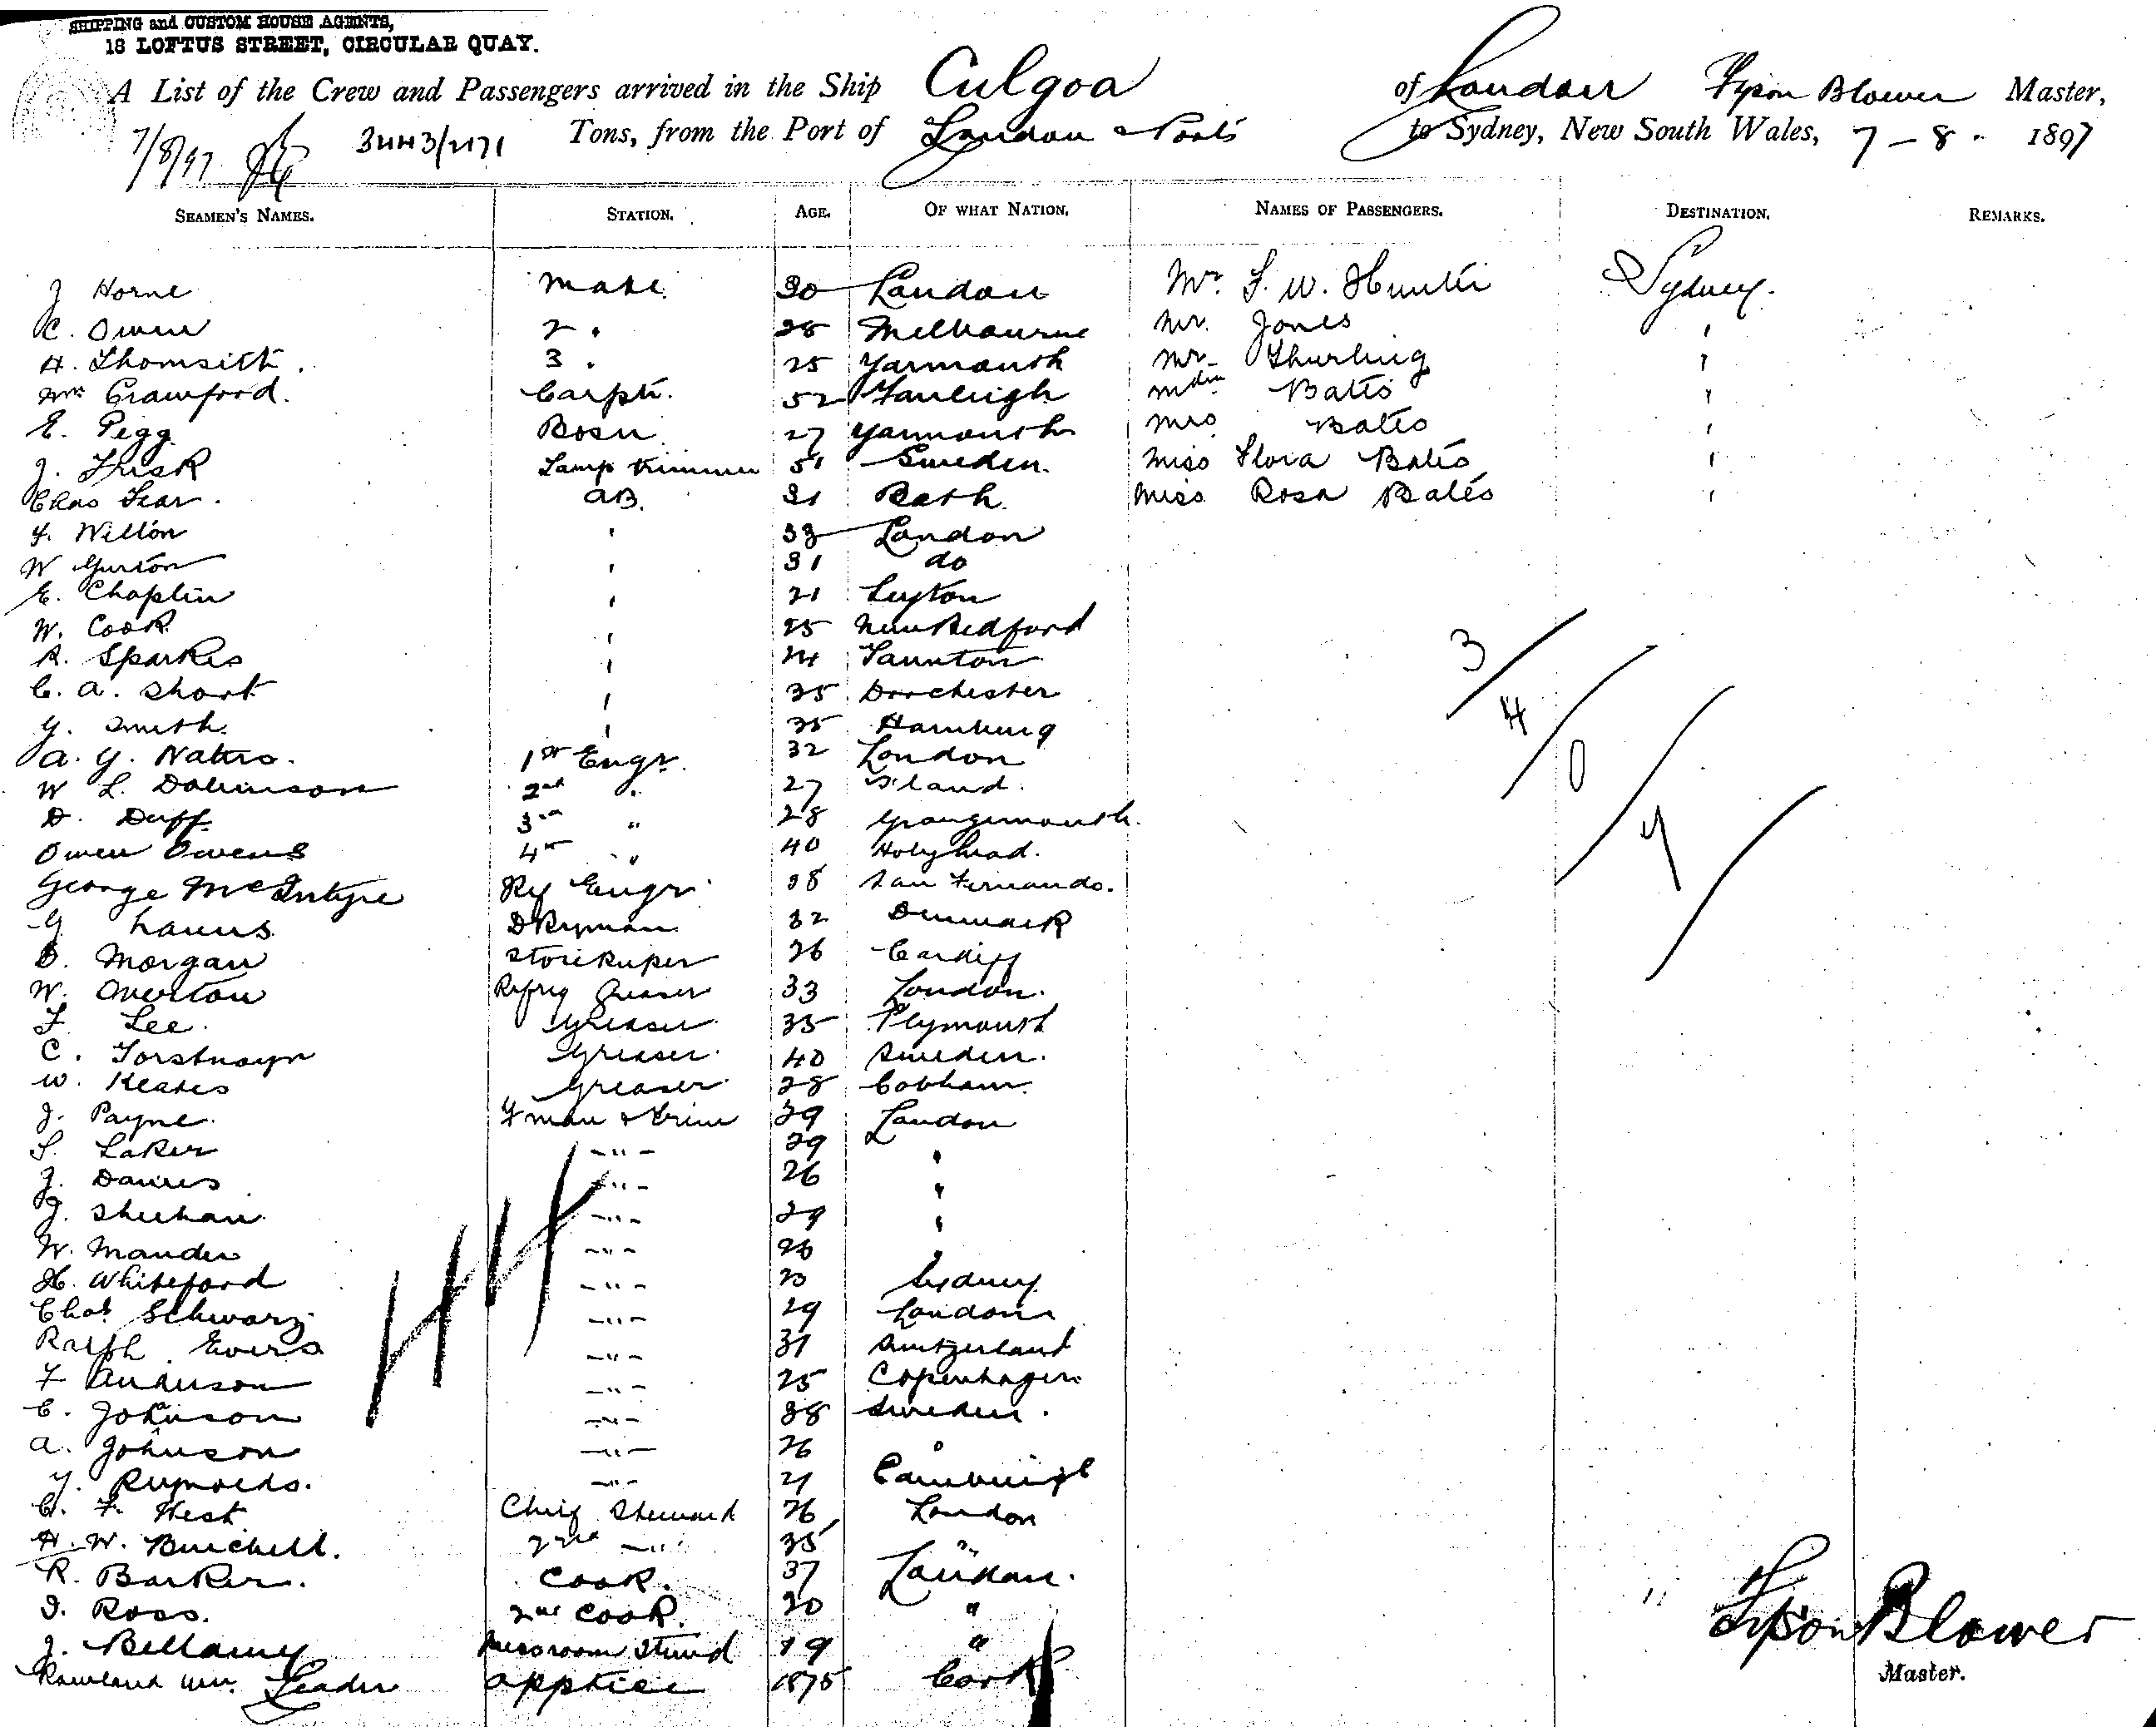 SHIPPING and CUSTOM HOUSE AGENTS,
18 LOFTUS STREET, CIRCULAR QUAY.
A List of the Crew and Passengers arrived in the Ship Culgoa of London Tyson Blower Master,
7/8/97 3443/2171 Tons, from the Port of London & Ports to Sydney, New South Wales, 7 - 8 - 1897
SEAMEN'S NAMES. STATION. AGE. OF WHAT NATION. NAMES OF PASSENGERS. DESTINATION. REMARKS.
J Horne Mate 30 London Mr. F. W. Hunter Sydney.
C. Owen 2 " 28 Melbourne Mr. Jones "
H. Thomsitt. 3 " 25 Yarmouth Mr Thurling "
Wm Crawford. Carptr. 52 Bates "
E. Pegg. Bosn 27 Yarmouth Mrs Bates "
J. Frisk Lamp trimmer 51 Sweden. Miss Flora Bates "
Chas Fear. AB. 31 Bath. Miss Rosa Bates "
F. Wilton " 33 London
W Gurton " 31 do
E. Chaplin " 21 Leyton
W. Cook " 25 New Bedford
R. Sparkes " 24 Taunton
C. A. Short " 35 Dorchester
G. Smith. " 35 Hamburg
A. G. Naters. 1st Engr. 32 London
W L. Dobinson 2nd " 27
D. Duff. 3rd " 28 Grangemouth.
Owen Owens 4th " 40 Holyhead.
George McIntyre Rfg Engr 38 San Fernando.
G Launs Dkyman 32 Denmark
D. Morgan Storekeeper 26 Cardiff
W. Overton Refrig Greaser 33 London.
F. Lee. Greaser 35 Plymouth
C. Greaser. 40 Sweden.
W. Keates Greaser 28 Cobham.
J. Payne. Fman & Trim 29 London
S. Laker -"- 29 "
J. Davies -"- 26 "
J. Sheehan -"- 29 "
W. Mander -"- 26 "
H. Whiteford -"- 23 Sydney
Chas. Schwarz -"- 29 London
Ralph Evers -"- 31 Switzerland
F Anderson -"- 25 Copenhagen
C. Johnson -"- 38 Sweden.
A. Johnson -"- 26 "
G. Reynolds. -"- 21
C. F. West Chief Steward 26 London
H. W. Burchell. 2nd -"- 35 "
R. Barker. Cook. 37 London.
D. Ross. 2nd Cook. 20 "
J. Bellamy Messroom Stewd 19 "
Rowland Wm. Leader apptice 1875 Cork
3/4/0/7/
Tyson Blower
Master.